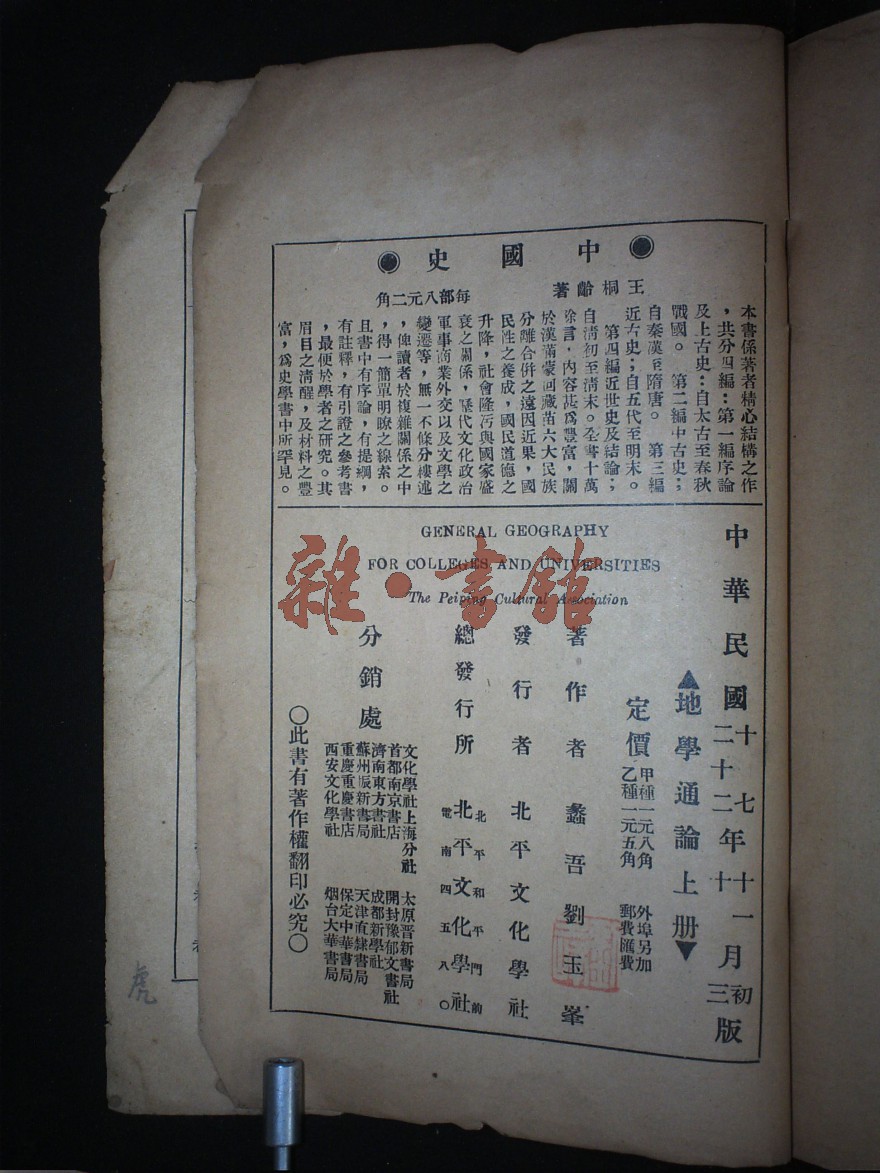 ●中國史●
王桐齡著
每部八元二角
本書係著者精心結構之作
，共分四編：第一編序論
及上古史：自太古至春秋
戰國。　第二編中古史；
自秦漢至隋唐。　第三編
近古史；自五代至明末。
　第四編近世史及結論；
自清初至清末。全書十萬
餘言，內容甚爲豐富，關
於漢滿蒙回藏苗六大民族
分離合併之遠因近果，國
民性之養成，國民道德之
升降，社會隆污與國家盛
衰之關係，歷代文化政治
軍事商業外交以及文學之
變遷等，無一不條分縷述
，俾讀者於複雜關係之中
，得一簡單明瞭之線索。
且書中有序論，有提綱，
有註釋，有引證之參考書
，最便於學者之研究。其
眉目之清醒，及材料之豐
富，爲史學書中所罕見。
GENERAL GEOGRAPHY
FOR COLLEGES AND UNIVERSITIES
The Peiping Cultural Association
中華民國十七年十一月初版
二十二年十月三版
▲地學通論上册▼
定價
甲種一元八角
乙種一元五角
外埠另加
郵費匯費
著作者　蠡吾劉玉峯
發行者　北平文化學社
總發行所　北平文化學社
北平和平門前
電南四五八〇
分銷處
文化學社上海分社
首都南京書店
濟南東方書社
蘇州振新書局
重慶重慶書店
西安文化學社
太原晋新書局
開封豫郁文書社
成都新學社
天津直隸書局
保定中華書局
烟台大華書局
〇此書有著作權翻印必究〇
虎
雜·書館